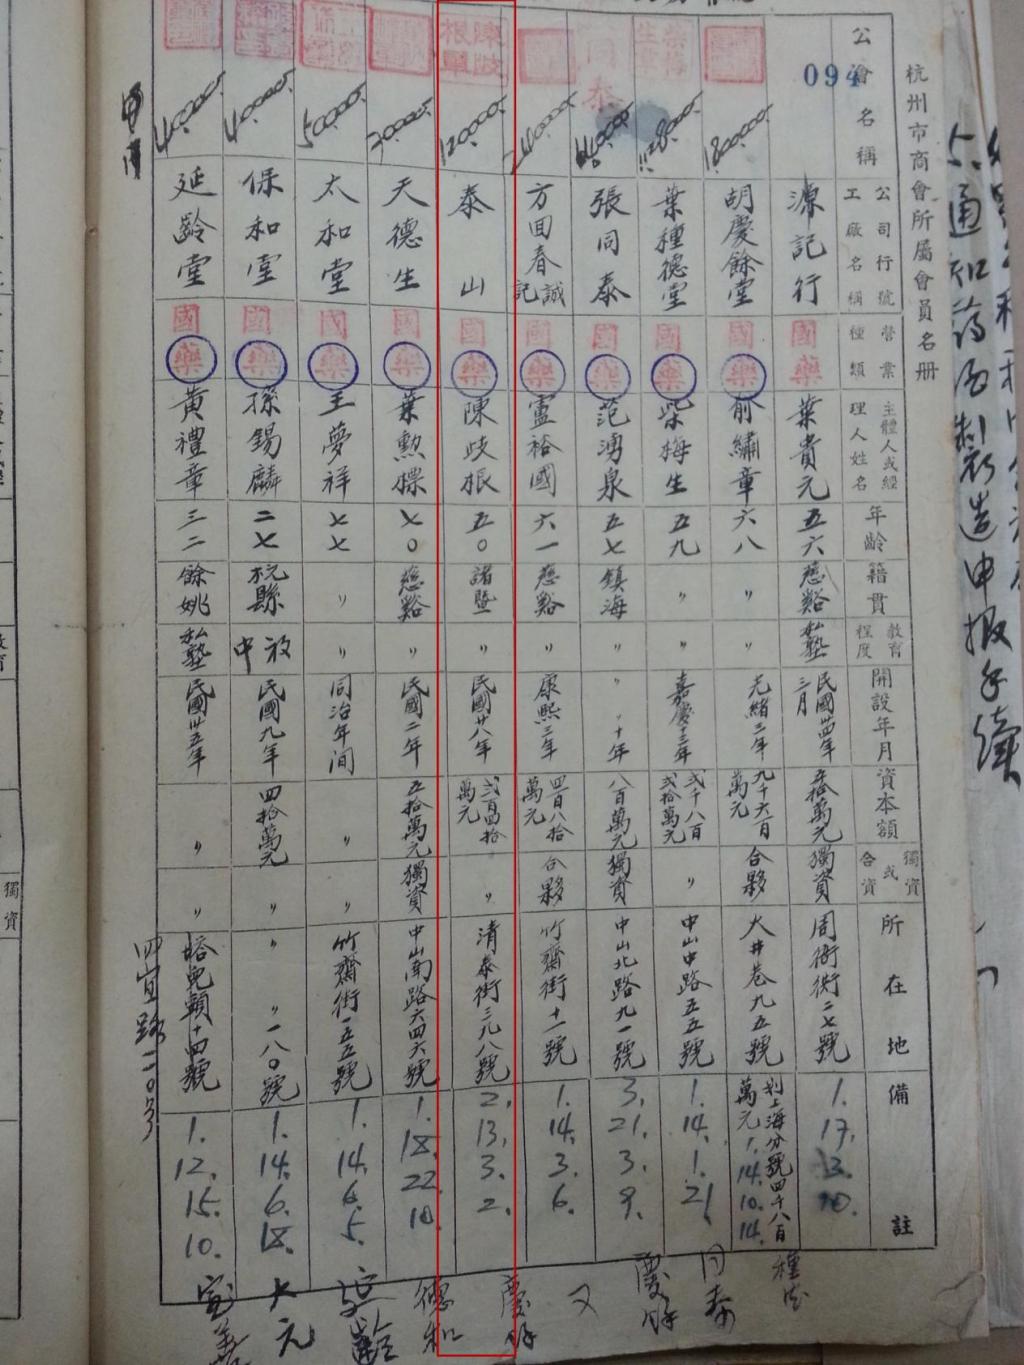 杭州市商會所屬會員名冊
公會名稱
公司行號工廠名稱
營業種類
主體人或經理人姓名
年齡
籍貫
教育程度
開設年月
資本額
獨資或合資
所在地
備註
094
源記行 國藥 葉貴元 五六 慈谿 私塾 民國卅四年三月 五拾萬元 獨資 周衙街二七號 1. 17. 3. 10.
180000 胡慶餘堂 國藥 俞繡章 六八 〃 〃 光緒三年 九千六百萬元 合夥 大井巷九五號 劃上海分號四千八百萬元 1. 14. 10. 14.
葉種德堂 國藥 柴梅生 五九 〃 〃 嘉慶十三年 弍千八百弍拾萬元 〃 中山中路五五號 1. 14. 1. 21.
同泰 張同泰 國藥 范湧泉 五七 鎮海 〃 〃十年 八百萬元 獨資 中山北路九一號 3. 21. 3. 9.
方回春誠記 國藥 盧裕國 六一 慈谿 〃 康熙三年 四百八拾萬元 合夥 竹齋街十一號 1. 14. 3. 6.
陳歧根章 120000 泰山 國藥 陳歧根 五〇 諸暨 〃 民國廿八年 弍百四拾萬元 〃 清泰街三九八號 2. 13. 3. 2.
70000 天德生 國藥 葉勲標 七〇 慈谿 〃 民國二年 五拾萬元 獨資 中山南路六四六號 1. 18. 22. 10.
50000 太和堂 國藥 王夢祥 七七 〃 〃 同治年间 〃 〃 竹齋街一五五號 1. 14. 6. 5.
40000 保和堂 國藥 孫錫麟 二七 杭縣 初中 民國九年 四拾萬元 〃 〃 〃一八〇號 1. 14. 6. 18.
40000 延齡堂 國藥 黃禮章 三二 餘姚 私塾 民國卅五年 〃 〃 塔兒頭十四號 1. 12. 15. 10.
四宜路二〇号
種德
同泰
慶餘
又
慶餘
德和
延齡
大元
通知药酒製造申报手續
獨資